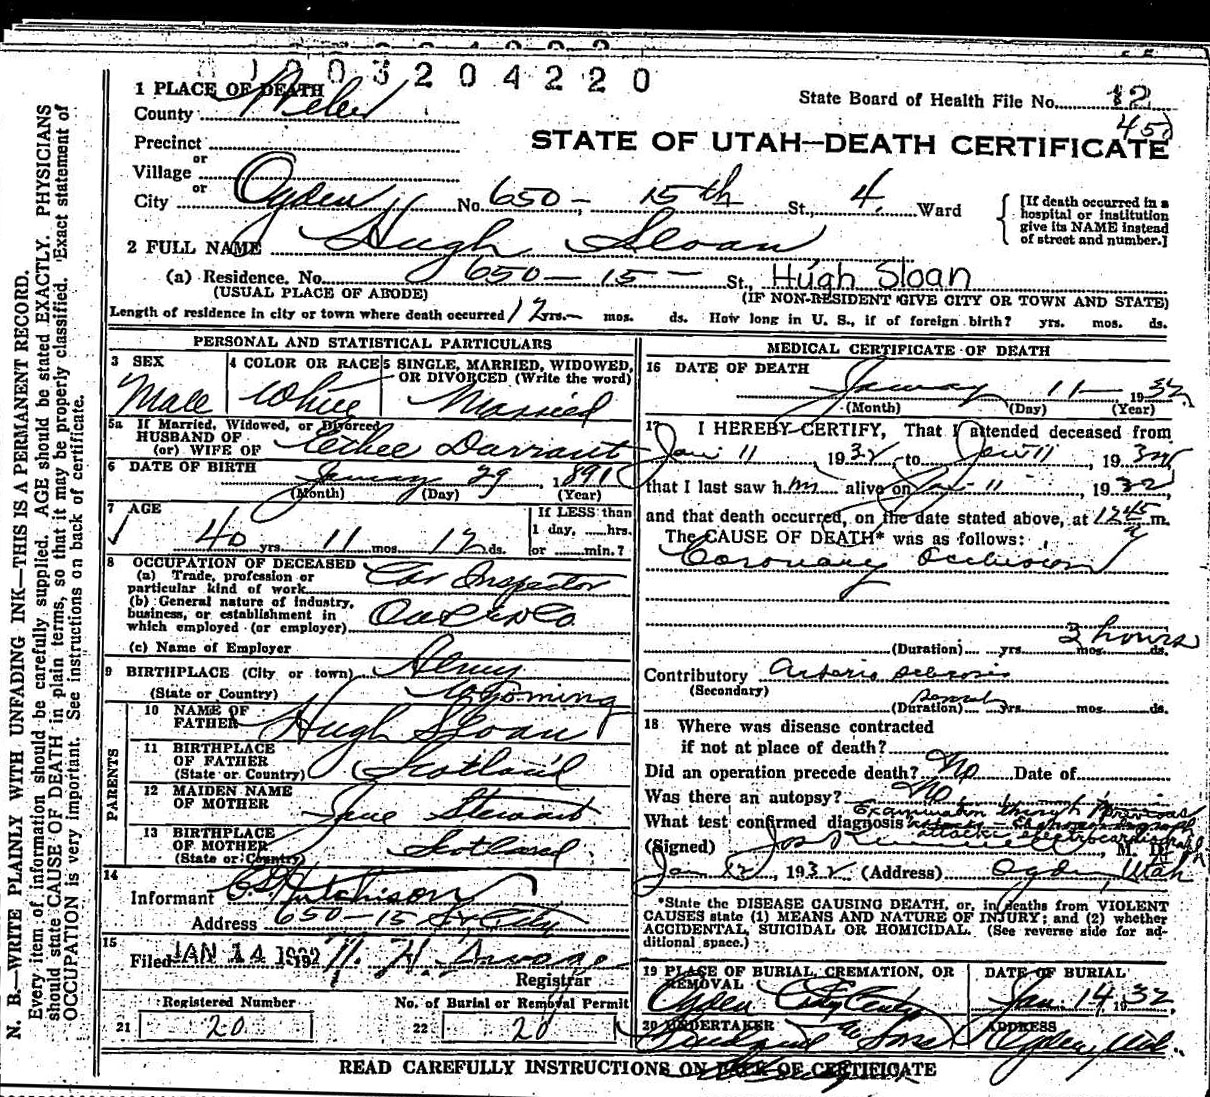 0 0 3 2 0 4 2 2 0
1 PLACE OF DEATH
State Board of Health File No. 12
County Weber
45
STATE OF UTAH—DEATH CERTIFICATE
Precinct
or
Village
or
City Ogden No. 650 - 15th St., 4. Ward
[If death occurred in a hospital or institution give its NAME instead of street and number.]
2 FULL NAME Hugh Sloan
(a) Residence. No. 650 - 15 - St., Hugh Sloan
(USUAL PLACE OF ABODE) (IF NON-RESIDENT GIVE CITY OR TOWN AND STATE)
Length of residence in city or town where death occurred 12 yrs. mos. ds. How long in U. S., if of foreign birth? yrs. mos. ds.
N. B.—WRITE PLAINLY WITH UNFADING INK—THIS IS A PERMANENT RECORD.
Every item of information should be carefully supplied. AGE should be stated EXACTLY. PHYSICIANS
should state CAUSE OF DEATH in plain terms, so that it may be properly classified. Exact statement of
OCCUPATION is very important. See instructions on back of certificate.
PERSONAL AND STATISTICAL PARTICULARS
3 SEX
Male
4 COLOR OR RACE
White
5 SINGLE, MARRIED, WIDOWED,
OR DIVORCED (Write the word)
Married
5a If Married, Widowed, or Divorced
HUSBAND OF
(or) WIFE OF Durrant
6 DATE OF BIRTH
January 29, 1891
(Month) (Day) (Year)
7 AGE
40 yrs. 11 mos. 12 ds.
If LESS than
1 day, hrs.
or min.?
8 OCCUPATION OF DECEASED
(a) Trade, profession or
particular kind of work Car Inspector
(b) General nature of industry,
business, or establishment in
which employed (or employer)
(c) Name of Employer
9 BIRTHPLACE (City or town)
(State or Country) Wyoming
PARENTS
10 NAME OF
FATHER Hugh Sloan
11 BIRTHPLACE
OF FATHER
(State or Country) Scotland
12 MAIDEN NAME
OF MOTHER Jane Stewart
13 BIRTHPLACE
OF MOTHER
(State or Country) Scotland
14
Informant Hutchison
Address 650 - 15 St. City
15
Filed JAN 14 1932
Registrar
Registered Number
21 20
No. of Burial or Removal Permit
22 20
MEDICAL CERTIFICATE OF DEATH
16 DATE OF DEATH
January 11 1932
(Month) (Day) (Year)
17 I HEREBY CERTIFY, That I attended deceased from
Jan 11, 1932, to Jan 11, 1932
that I last saw him alive on Jan 11, 1932,
and that death occurred, on the date stated above, at 12 45 m.
The CAUSE OF DEATH* was as follows:
Coronary Occlusion
3 hours
(Duration) yrs. mos. ds.
Contributory Arterio sclerosis
(Secondary)
(Duration) yrs. mos. ds.
18 Where was disease contracted
if not at place of death?
Did an operation precede death? No Date of
Was there an autopsy? No
What test confirmed diagnosis Examination through previous
attacks electrocardiograph
(Signed) M. D.
Jan 12, 1932 (Address) Ogden, Utah
*State the DISEASE CAUSING DEATH, or, in deaths from VIOLENT
CAUSES state (1) MEANS AND NATURE OF INJURY; and (2) whether
ACCIDENTAL, SUICIDAL OR HOMICIDAL. (See reverse side for ad-
ditional space.)
19 PLACE OF BURIAL, CREMATION, OR
REMOVAL
Ogden City
DATE OF BURIAL
Jan. 14, 1932
20 UNDERTAKER
& Sons
ADDRESS
Ogden, Utah
READ CAREFULLY INSTRUCTIONS ON BACK OF CERTIFICATE